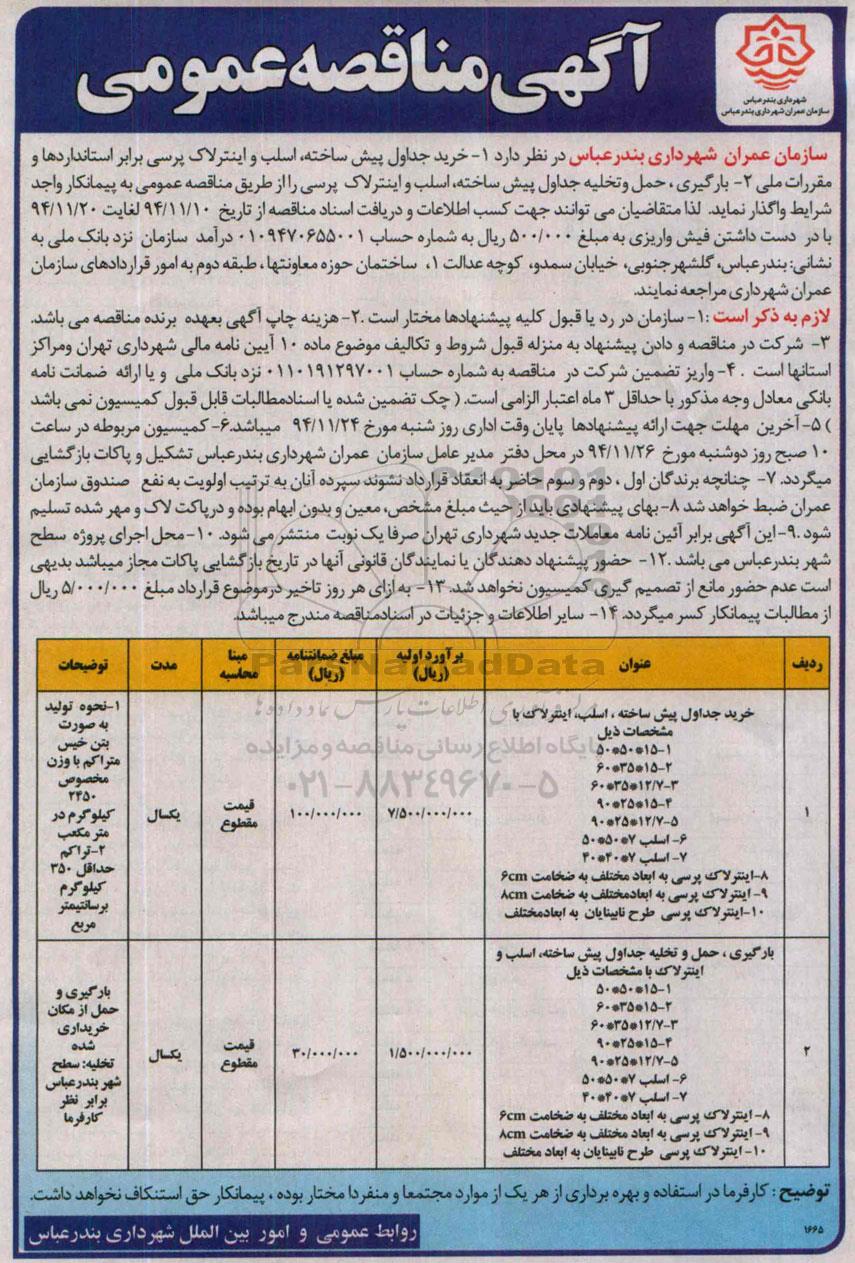 شهرداری بندرعباس
سازمان عمران شهرداری بندرعباس
آگهی مناقصه عمومی
سازمان عمران شهرداری بندرعباس در نظر دارد ۱- خرید جداول پیش ساخته، اسلب و اینترلاک پرسی برابر استانداردها و
مقررات ملی ۲- بارگیری ، حمل وتخلیه جداول پیش ساخته، اسلب و اینترلاک پرسی را از طریق مناقصه عمومی به پیمانکار واجد
شرایط واگذار نماید. لذا متقاضیان می توانند جهت کسب اطلاعات و دریافت اسناد مناقصه از تاریخ ۹۴/۱۱/۱۰ لغایت ۹۴/۱۱/۲۰
با در دست داشتن فیش واریزی به مبلغ ۵۰۰/۰۰۰ ریال به شماره حساب ۰۱۰۹۴۷۰۶۵۵۰۰۱ درآمد سازمان نزد بانک ملی به
نشانی: بندرعباس، گلشهرجنوبی، خیابان سمدو، کوچه عدالت ۱، ساختمان حوزه معاونتها، طبقه دوم به امور قراردادهای سازمان
عمران شهرداری مراجعه نمایند.
لازم به ذکر است :۱- سازمان در رد یا قبول کلیه پیشنهادها مختار است .۲- هزینه چاپ آگهی بعهده برنده مناقصه می باشد.
۳- شرکت در مناقصه و دادن پیشنهاد به منزله قبول شروط و تکالیف موضوع ماده ۱۰ آیین نامه مالی شهرداری تهران ومراکز
استانها است . ۴- واریز تضمین شرکت در مناقصه به شماره حساب ۰۱۱۰۱۹۱۲۹۷۰۰۱ نزد بانک ملی و یا ارائه ضمانت نامه
بانکی معادل وجه مذکور با حداقل ۳ ماه اعتبار الزامی است. ( چک تضمین شده یا اسنادمطالبات قابل قبول کمیسیون نمی باشد
) ۵- آخرین مهلت جهت ارائه پیشنهادها پایان وقت اداری روز شنبه مورخ ۹۴/۱۱/۲۴ میباشد.۶- کمیسیون مربوطه در ساعت
۱۰ صبح روز دوشنبه مورخ ۹۴/۱۱/۲۶ در محل دفتر مدیر عامل سازمان عمران شهرداری بندرعباس تشکیل و پاکات بازگشایی
میگردد. ۷- چنانچه برندگان اول ، دوم و سوم حاضر به انعقاد قرارداد نشوند سپرده آنان به ترتیب اولویت به نفع صندوق سازمان
عمران ضبط خواهد شد ۸- بهای پیشنهادی باید از حیث مبلغ مشخص، معین و بدون ابهام بوده و درپاکت لاک و مهر شده تسلیم
شود .۹- این آگهی برابر آئین نامه معاملات جدید شهرداری تهران صرفا یک نوبت منتشر می شود. ۱۰- محل اجرای پروژه سطح
شهر بندرعباس می باشد .۱۲- حضور پیشنهاد دهندگان یا نمایندگان قانونی آنها در تاریخ بازگشایی پاکات مجاز میباشد بدیهی
است عدم حضور مانع از تصمیم گیری کمیسیون نخواهد شد. ۱۳- به ازای هر روز تاخیر درموضوع قرارداد مبلغ ۵/۰۰۰/۰۰۰ ریال
از مطالبات پیمانکار کسر میگردد. ۱۴- سایر اطلاعات و جزئیات در اسنادمناقصه مندرج میباشد.
ردیف عنوان برآورد اولیه (ریال) مبلغ ضمانتنامه (ریال) مبنا محاسبه مدت توضیحات
۱
خرید جداول پیش ساخته ، اسلب، اینترلاک با
مشخصات ذیل
۱-۱۵*۵۰*۵۰
۲-۱۵*۳۵*۶۰
۳-۱۲/۷*۳۵*۶۰
۴-۱۵*۲۵*۹۰
۵-۱۲/۷*۲۵*۹۰
۶- اسلب ۷*۵۰*۵۰
۷- اسلب ۷*۴۰*۴۰
۸-اینترلاک پرسی به ابعاد مختلف به ضخامت ۶cm
۹- اینترلاک پرسی به ابعادمختلف به ضخامت ۸cm
۱۰-اینترلاک پرسی طرح نابینایان به ابعادمختلف
۷/۵۰۰/۰۰۰/۰۰۰
۱۰۰/۰۰۰/۰۰۰
قیمت
مقطوع
یکسال
۱-نحوه تولید
به صورت
بتن خیس
متراکم با وزن
مخصوص
۲۴۵۰
کیلوگرم در
متر مکعب
۲-تراکم
حداقل ۳۵۰
کیلوگرم
برسانتیمتر
مربع
۲
بارگیری ، حمل و تخلیه جداول پیش ساخته، اسلب و
اینترلاک با مشخصات ذیل
۱-۱۵*۵۰*۵۰
۲-۱۵*۳۵*۶۰
۳-۱۲/۷*۳۵*۶۰
۴-۱۵*۲۵*۹۰
۵-۱۲/۷*۲۵*۹۰
۶- اسلب ۷*۵۰*۵۰
۷- اسلب ۷*۴۰*۴۰
۸- اینترلاک پرسی به ابعاد مختلف به ضخامت ۶cm
۹- اینترلاک پرسی به ابعاد مختلف به ضخامت ۸cm
۱۰- اینترلاک پرسی طرح نابینایان به ابعاد مختلف
۱/۵۰۰/۰۰۰/۰۰۰
۳۰/۰۰۰/۰۰۰
قیمت
مقطوع
یکسال
بارگیری و
حمل از مکان
خریداری
شده
تخلیه: سطح
شهر بندرعباس
برابر نظر
کارفرما
ParsNamadData
پایگاه اطلاع رسانی مناقصه و مزایده
۰۲۱-۸۸۳۴۹۶۷۰-۵
توضیح : کارفرما در استفاده و بهره برداری از هر یک از موارد مجتمعا و منفردا مختار بوده ، پیمانکار حق استنکاف نخواهد داشت.
۱۶۶۵
روابط عمومی و امور بین الملل شهرداری بندرعباس